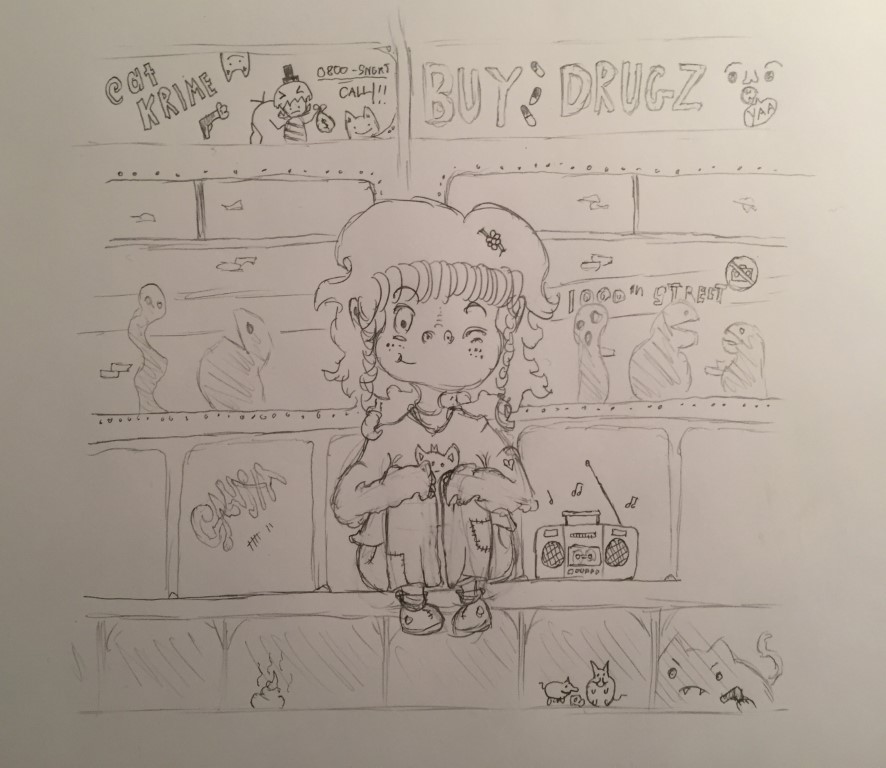 Cat
KRIME
0800-SNGRT
CALL!!!
BUY DRUGZ
YAA
1000TH STREET